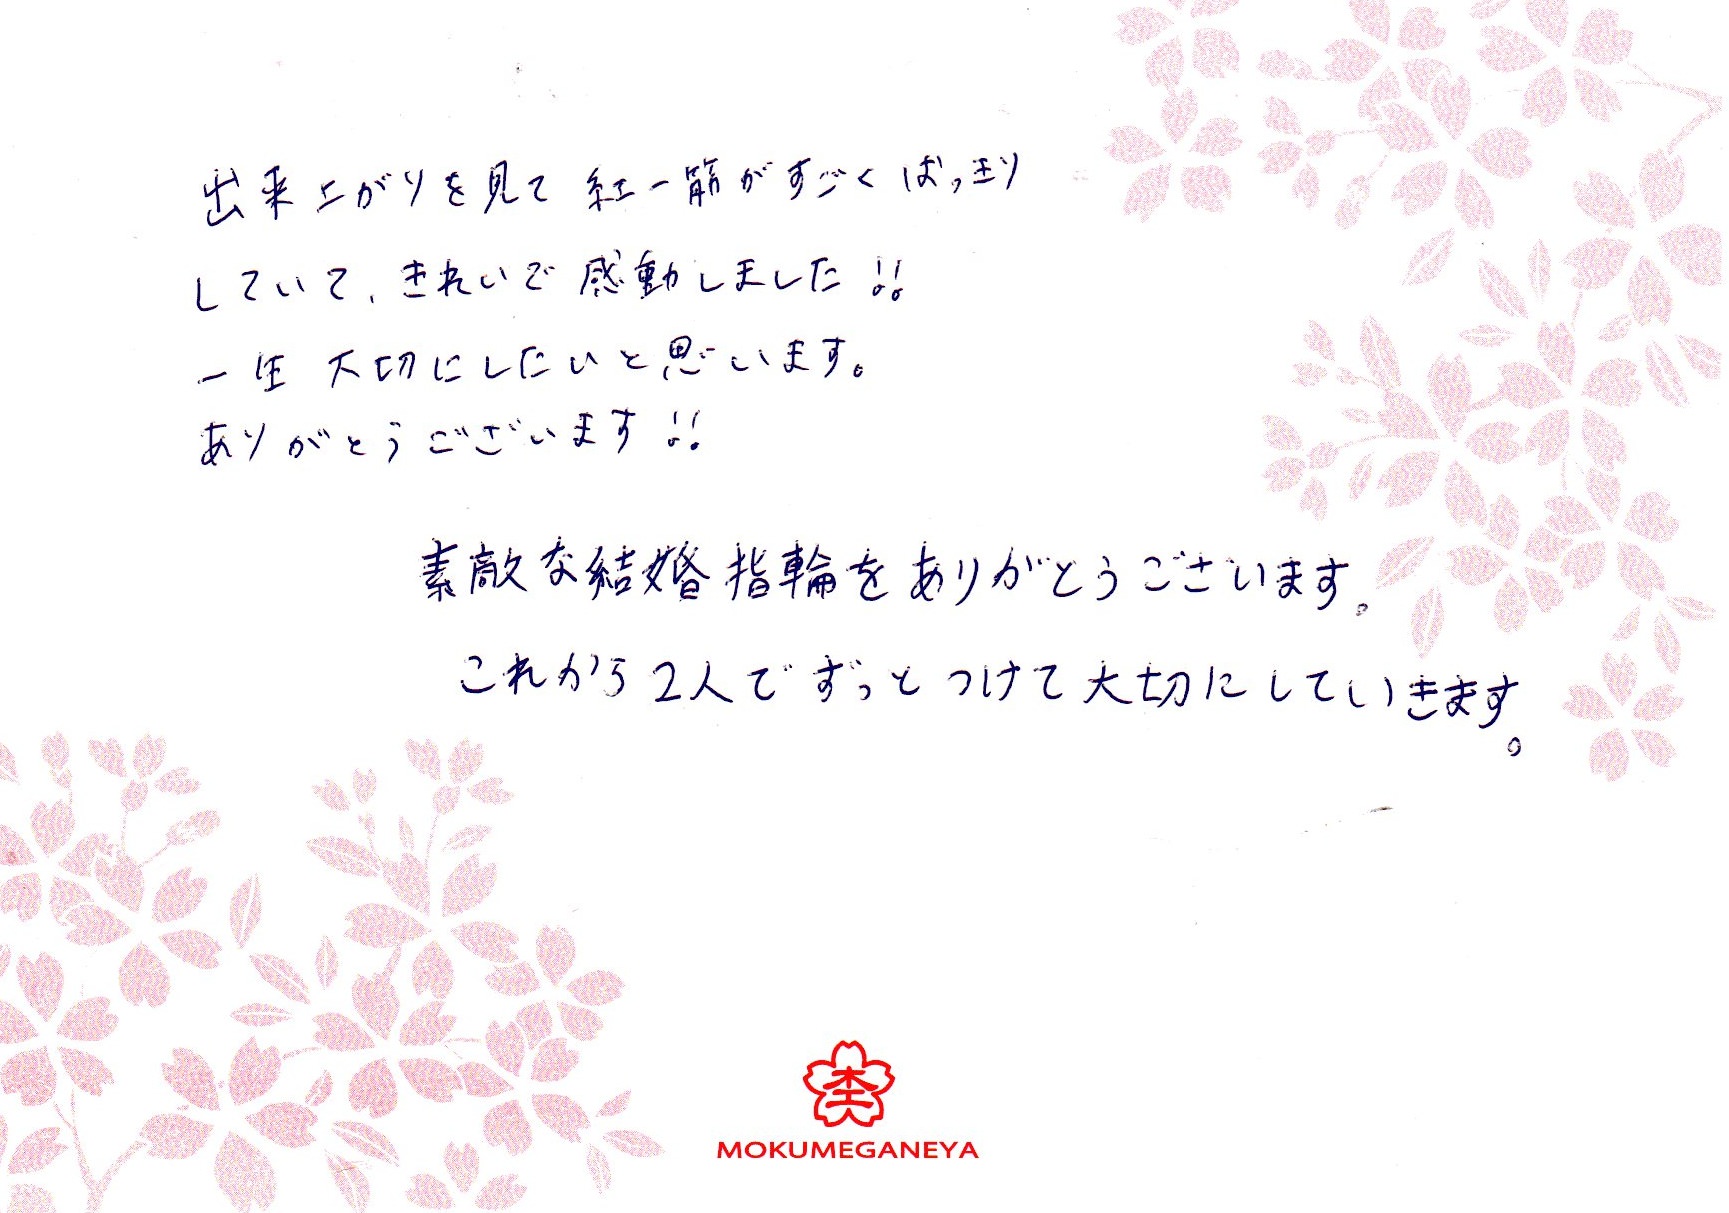 出来上がりを見て 紅一筋がすごくはっきり
していて、きれいで感動しました!!
一生 大切にしたいと思います。
ありがとうございます!!
素敵な結婚指輪をありがとうございます。
これから2人でずっとつけて大切にしていきます。
杢
MOKUMEGANEYA